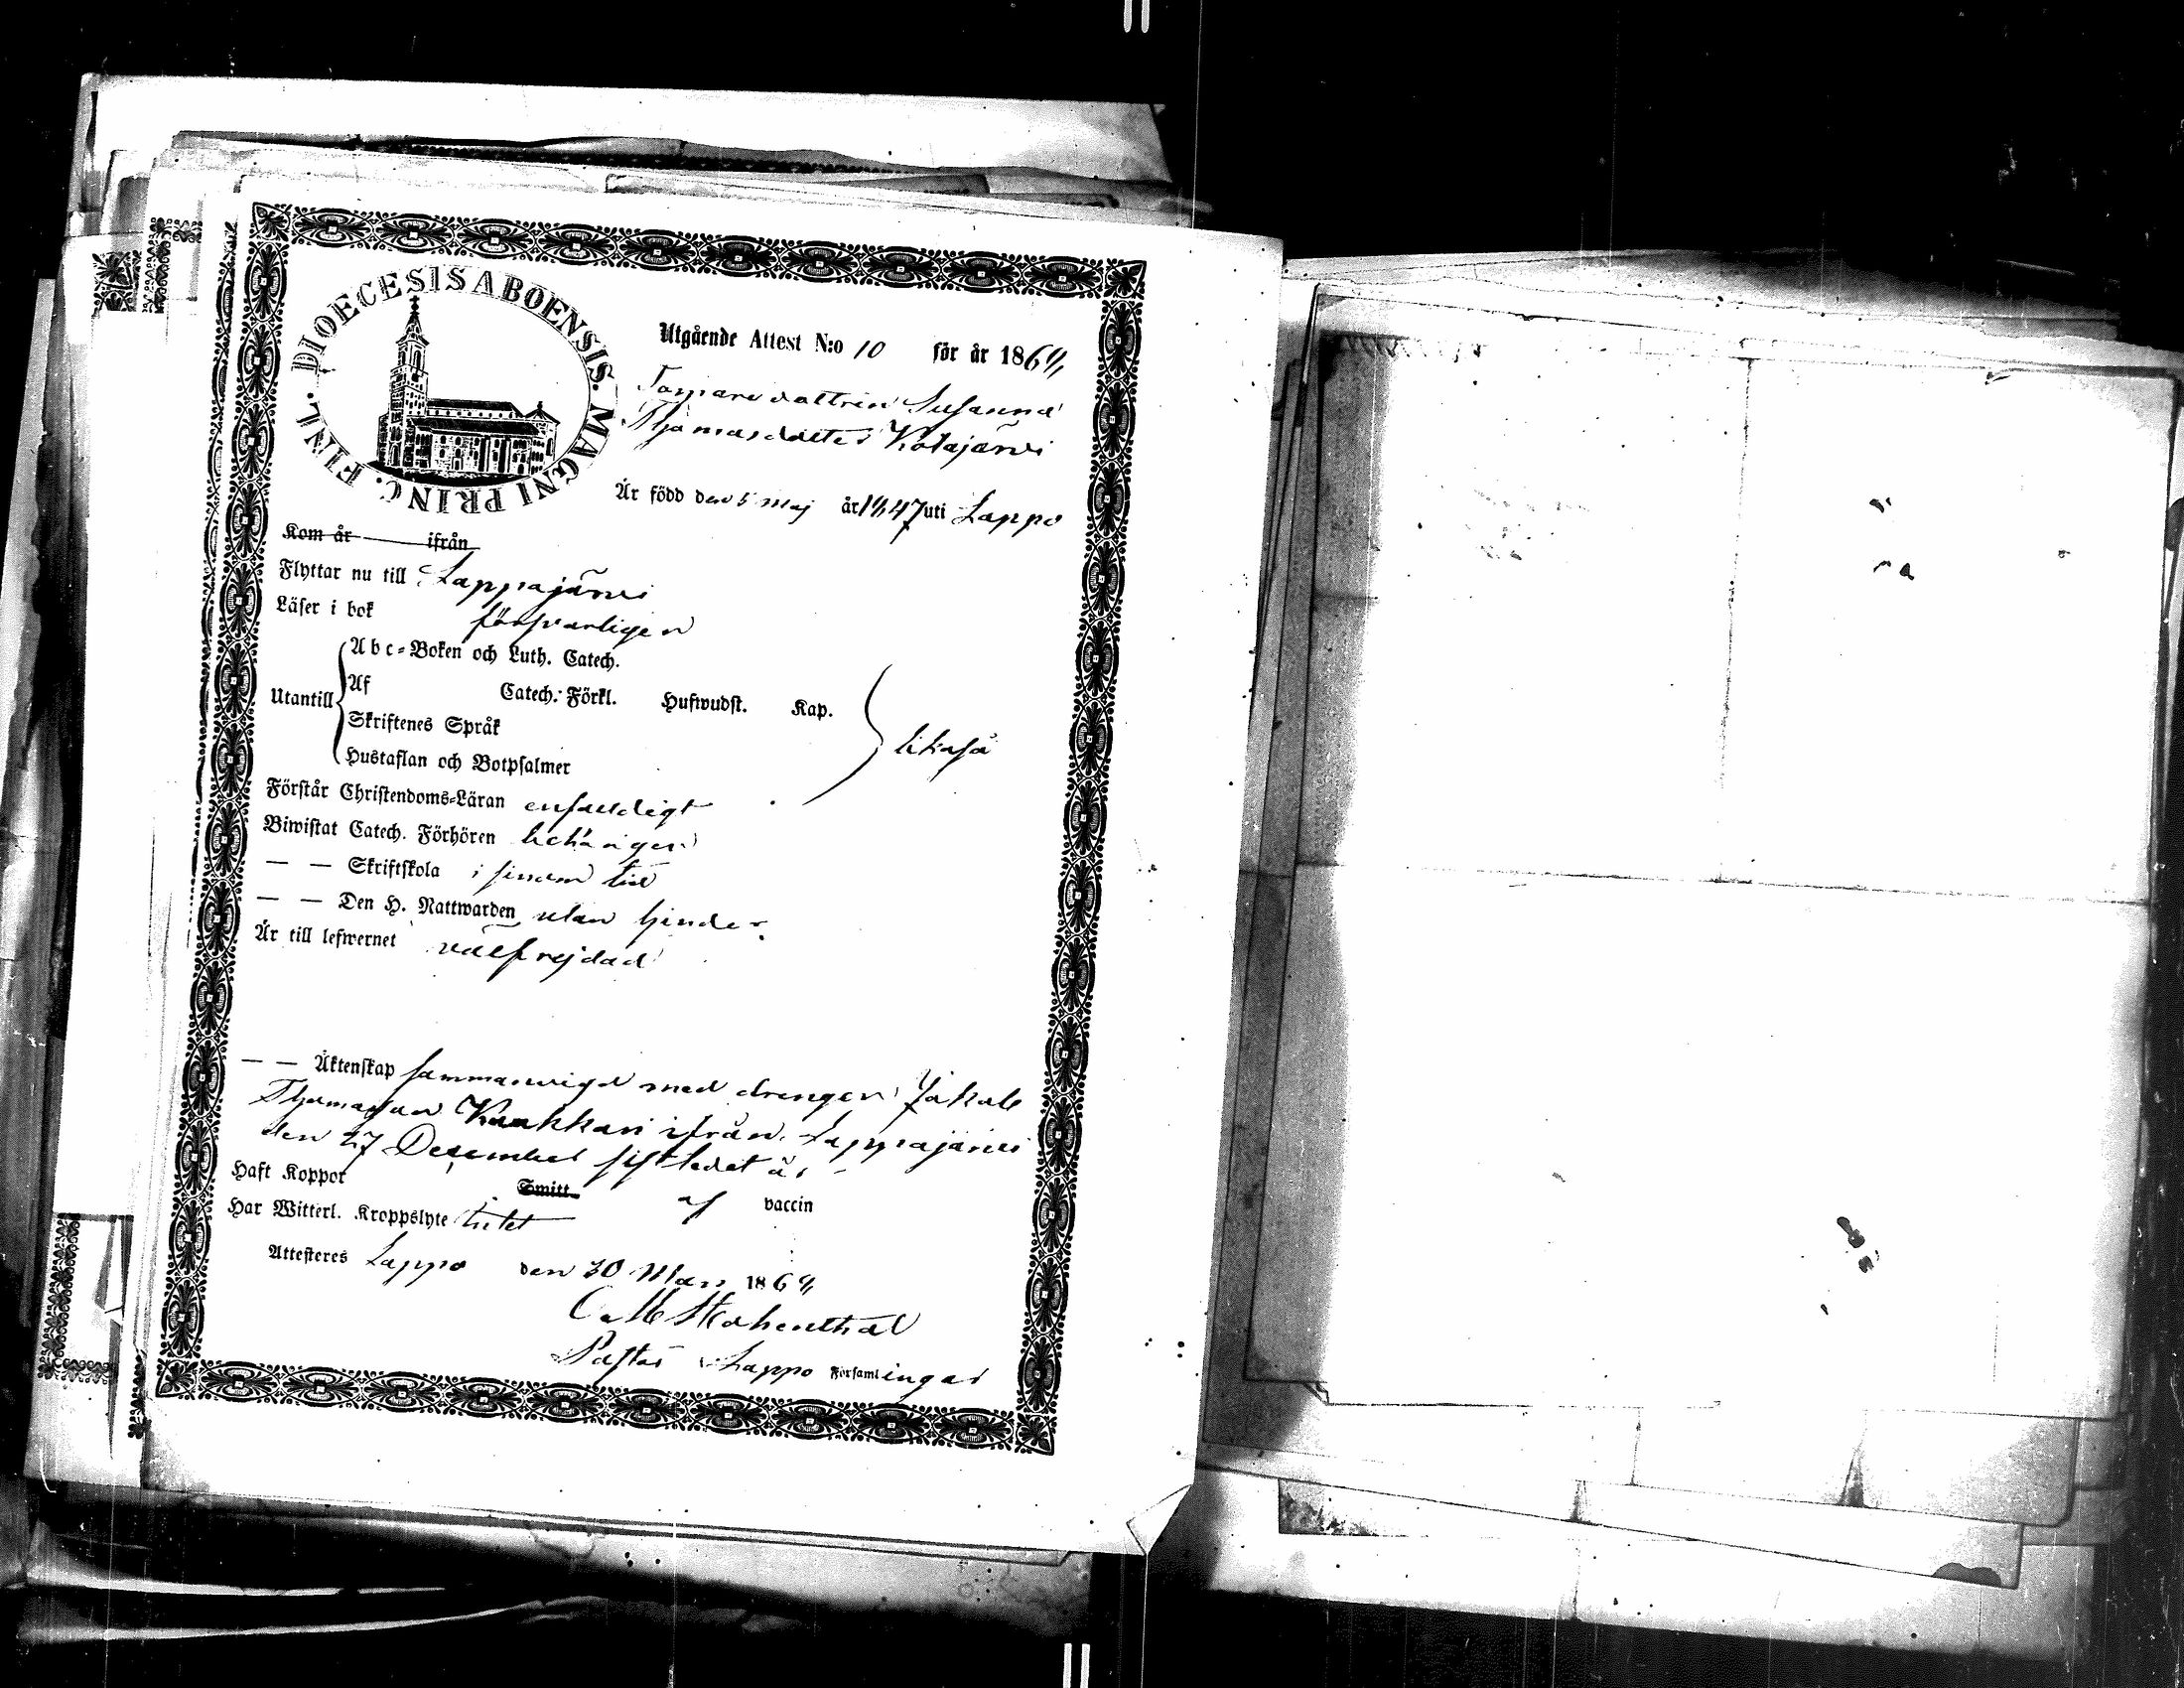 DIOECESIS ABOENSIS. MAGNI PRINC. FINL.
Utgående Attest N:o 10 för år 1864
Susanna
Thomasdotter Kotajärvi
Är född den 5 Maj år 1847 uti Lappo
Kom år ifrån
Flyttar nu till Lappajärvi
Läser i bok försvarligen
Utantill
Abc-Boken och Luth. Catech.
Af Catech. Förkl. Hufwudst. Kap.
Skriftenes Språk
Hustaflan och Botpsalmer
likaså
Förstår Christendoms-Läran enfaldigt
Biwistat Catech. Förhören behörigen
— — Skriftskola i sinom tid
— — Den H. Nattwarden utan hinder
Är till lefwernet välfrejdad
— — Äktenskap sammanvigd med drengen Jakob
Thomasson Kaukkari ifrån Lappajärvi
den 27 December sistledet år
Haft Koppor Smitt af vaccin
Har Witterl. Kroppslyte intet
Attesteres Lappo den 30 Mars 1864
Stahenthal
Pastor Lappo Församlingar